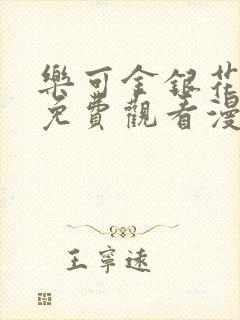 樂可金銀花
免費觀看漫
王寧遠